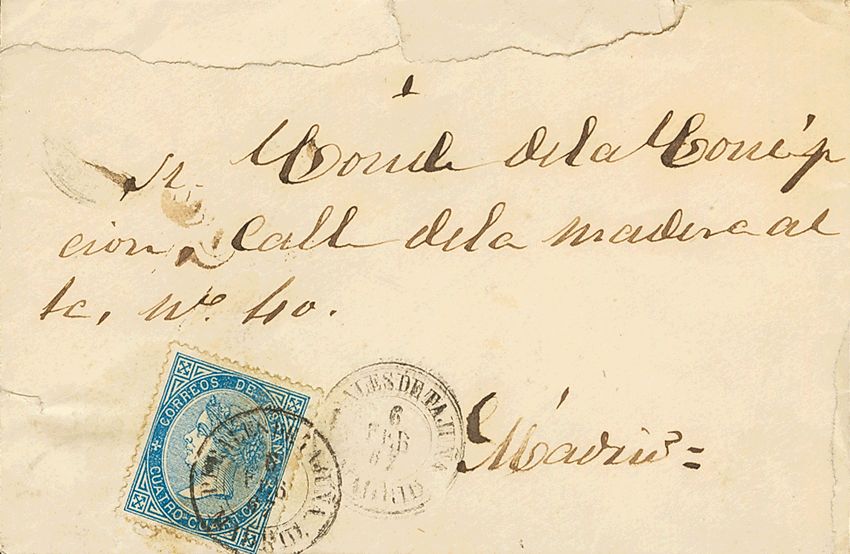 Sr. Conde de la Concep
cion, Calle de la madera al
ta, nº. 40.
Madrid =
CORREOS DE ESPAÑA
CUATRO CUARTOS
ALES DE TAJUÑA
6
FEB
67
MADRID